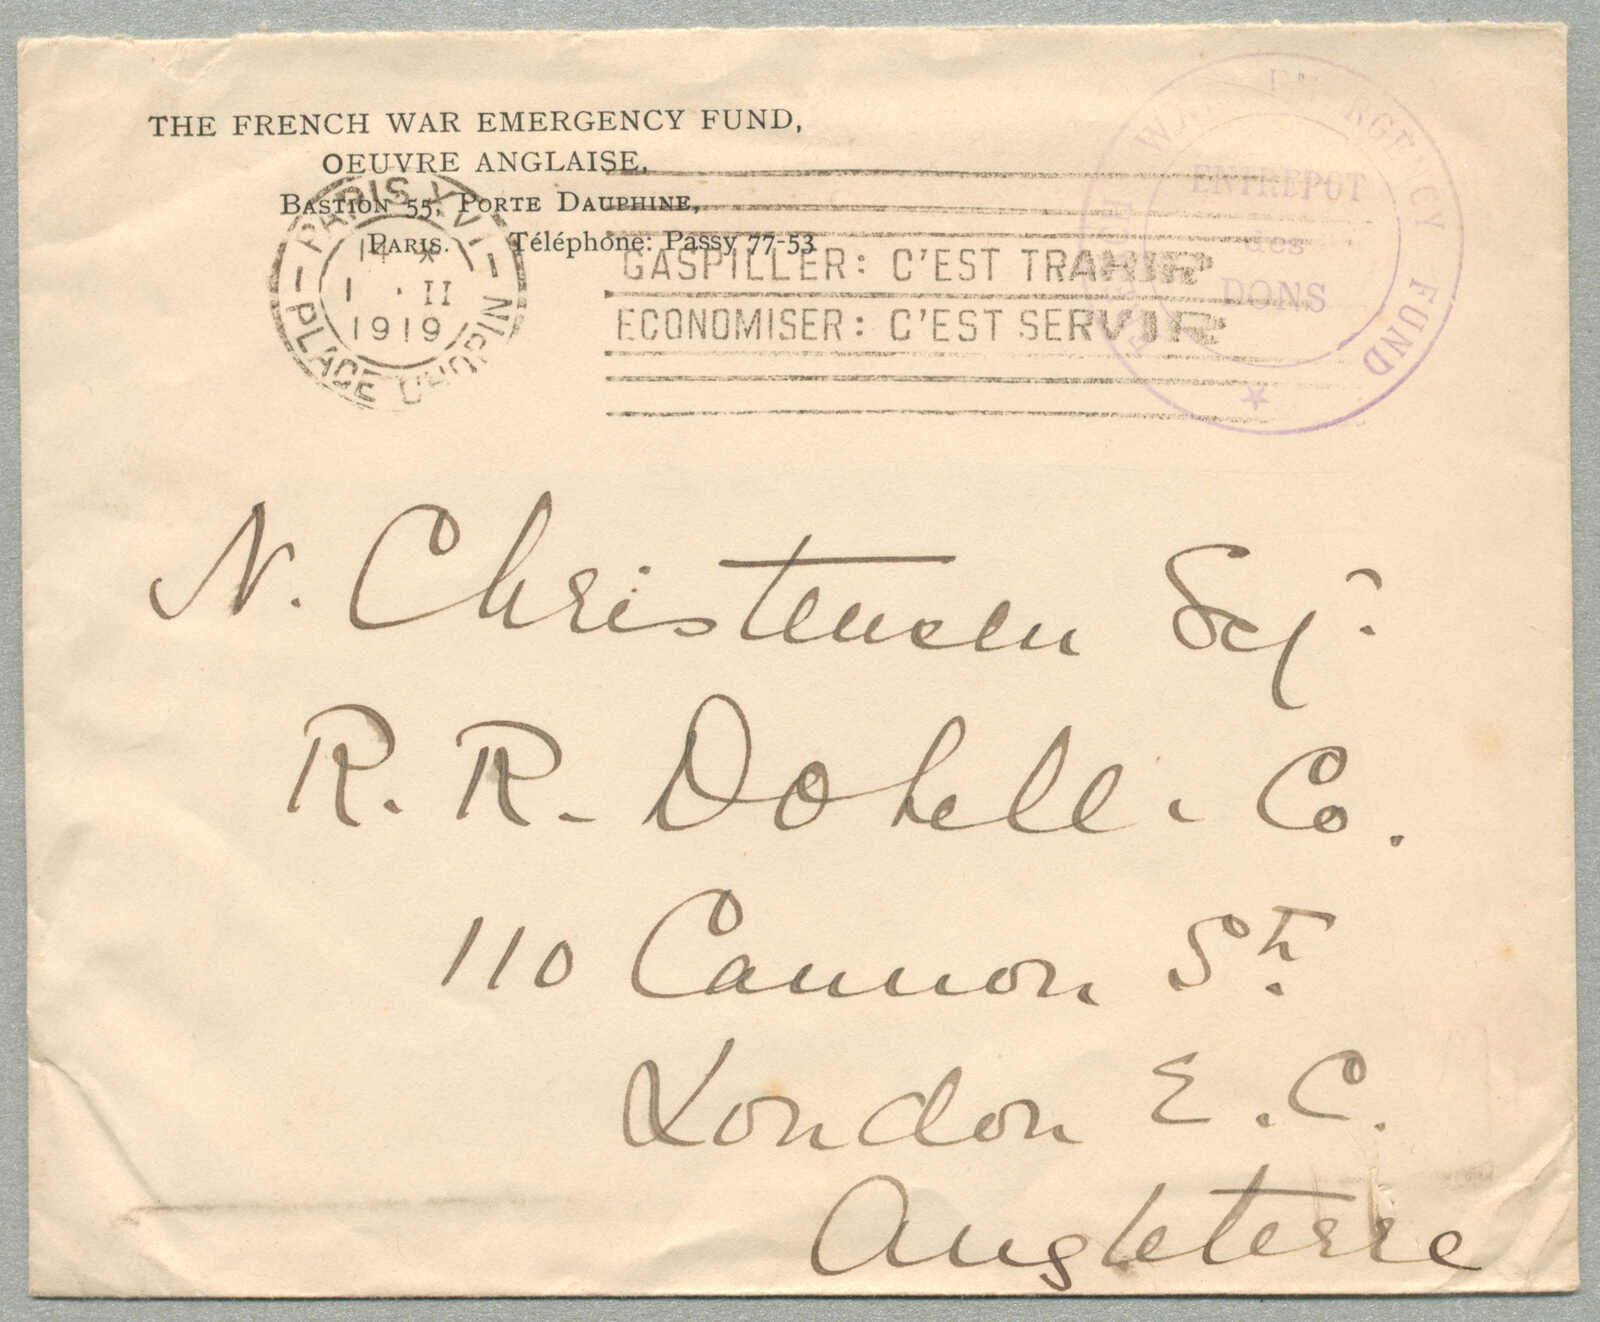 THE FRENCH WAR EMERGENCY FUND,
OEUVRE ANGLAISE,
BASTION 55, PORTE DAUPHINE,
PARIS. Téléphone: Passy 77-53
PARIS XVI
14 *
1 · II
1919
PLACE CHOPIN
GASPILLER: C'EST TRAHIR
ECONOMISER: C'EST SERVIR
FRENCH WAR EMERGENCY FUND
ENTREPOT
des
DONS
N. Christensen Esq.
R. R. Dobell & Co.
110 Cannon St.
London E.C.
Angleterre